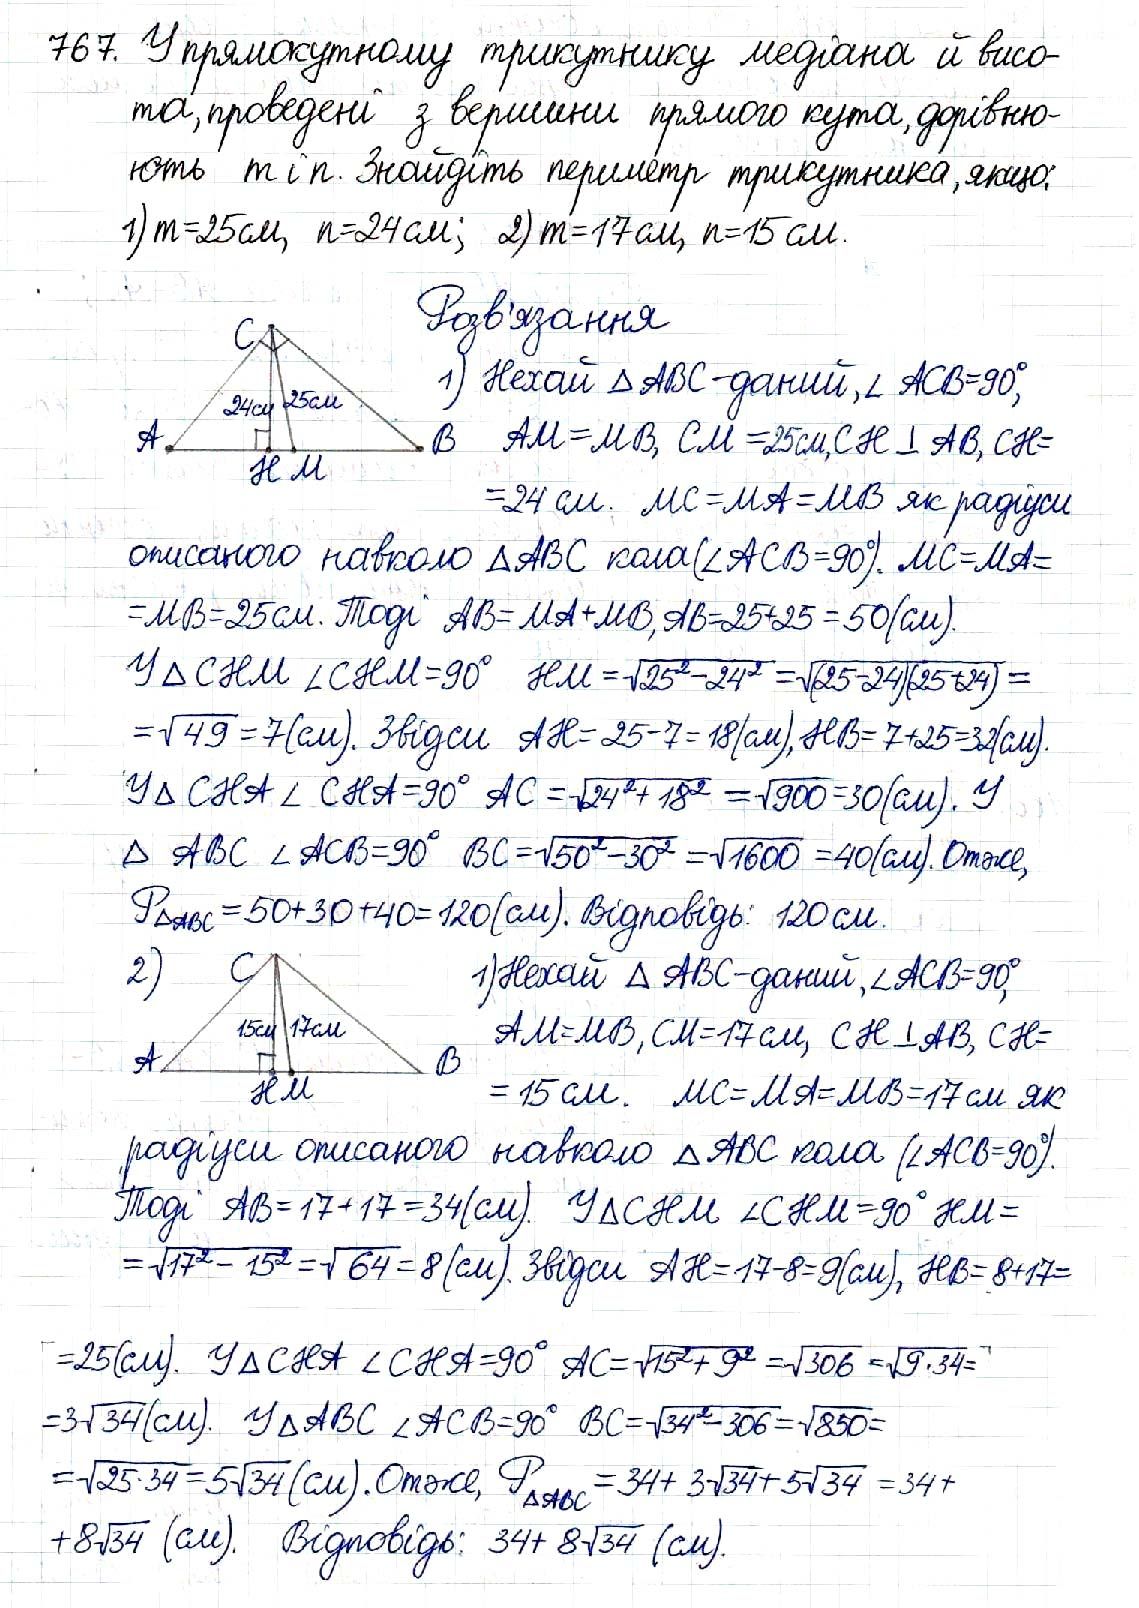 767. У прямокутному трикутнику медіана й висо-
та, проведені з вершини прямого кута, дорівню-
ють m і n. Знайдіть периметр трикутника, якщо:
1) m=25см, n=24см; 2) m=17см, n=15см.
Розв'язання
C
24см 25см
A B
H M
1) Нехай △ABC-даний, ∠ACB=90°,
AM=MB, CM=25см, CH⊥AB, CH=
=24см. MC=MA=MB як радіуси
описаного навколо △ABC кола (∠ACB=90°). MC=MA=
=MB=25см. Тоді AB=MA+MB, AB=25+25=50(см).
У △CHM ∠CHM=90° HM=√25²-24²=√(25-24)(25+24)=
=√49=7(см). Звідси AH=25-7=18(см), HB=7+25=32(см).
У △CHA ∠CHA=90° AC=√24²+18²=√900=30(см). У
△ABC ∠ACB=90° BC=√50²-30²=√1600=40(см). Отже,
P△ABC=50+30+40=120(см). Відповідь: 120см.
2)
C
15см 17см
A B
H M
1) Нехай △ABC-даний, ∠ACB=90°,
AM=MB, CM=17см, CH⊥AB, CH=
=15см. MC=MA=MB=17см як
радіуси описаного навколо △ABC кола (∠ACB=90°).
Тоді AB=17+17=34(см). У △CHM ∠CHM=90° HM=
=√17²-15²=√64=8(см). Звідси AH=17-8=9(см), HB=8+17=
=25(см). У △CHA ∠CHA=90° AC=√15²+9²=√306=√9·34=
=3√34(см). У △ABC ∠ACB=90° BC=√34²-306=√850=
=√25·34=5√34(см). Отже, P△ABC=34+3√34+5√34=34+
+8√34 (см). Відповідь: 34+8√34 (см).